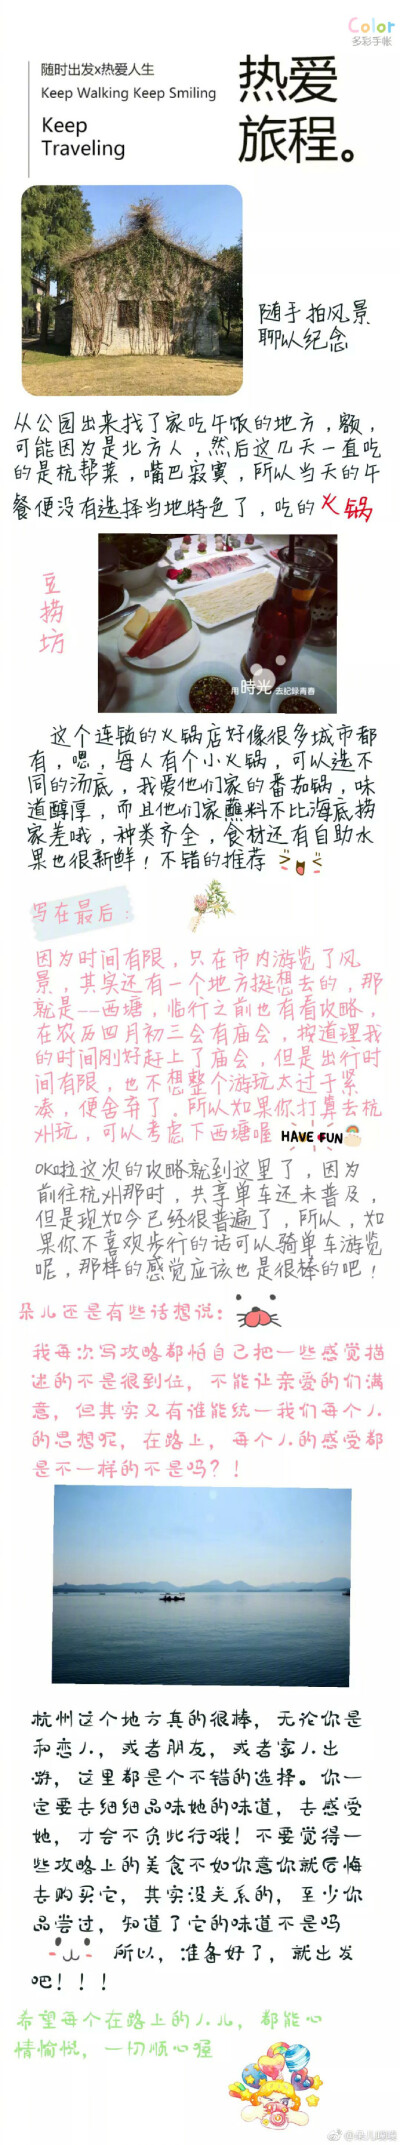 Color
多彩手帐
随时出发x热爱人生
Keep Walking Keep Smiling
Keep
Traveling
热爱
旅程。
随手拍风景
聊以纪念
从公园出来找了家吃午饭的地方，额，
可能因为是北方人，然后这几天一直吃
的是杭帮菜，嘴巴寂寞，所以当天的午
餐便没有选择当地特色了，吃的火锅
豆捞坊
用時光去紀録青春
这个连锁的火锅店好像很多城市都
有，嗯，每人有个小火锅，可以选不
同的汤底，我爱他们家的番茄锅，味
道醇厚，而且他们家蘸料不比海底捞
家差哦，种类齐全，食材还有自助水
果也很新鲜！不错的推荐
写在最后：
因为时间有限，只在市内游览了风
景，其实还有一个地方挺想去的，那
就是——西塘，临行之前也有看攻略，
在农历四月初三会有庙会，按道理我
的时间刚好赶上了庙会，但是出行时
间有限，也不想整个游玩太过于紧
凑，便舍弃了。所以如果你打算去杭
州玩，可以考虑下西塘喔 HAVE FUN
OK啦这次的攻略就到这里了，因为
前往杭州那时，共享单车还未普及，
但是现如今已经很普遍了，所以，如
果你不喜欢步行的话可以骑单车游览
呢，那样的感觉应该也是很棒的吧！
朵儿还是有些话想说：
我每次写攻略都怕自己把一些感觉描
述的不是很到位，不能让亲爱的们满
意，但其实又有谁能统一我们每个人
的思想呢，在路上，每个人的感受都
是不一样的不是吗？！
杭州这个地方真的很棒，无论你是
和恋人，或者朋友，或者家人出
游，这里都是个不错的选择。你一
定要去细细品味她的味道，去感受
她，才会不负此行哦！不要觉得一
些攻略上的美食不如你意你就后悔
去购买它，其实没关系的，至少你
品尝过，知道了它的味道不是吗
所以，准备好了，就出发
吧！！！
希望每个在路上的人儿，都能心
情愉悦，一切顺心喔